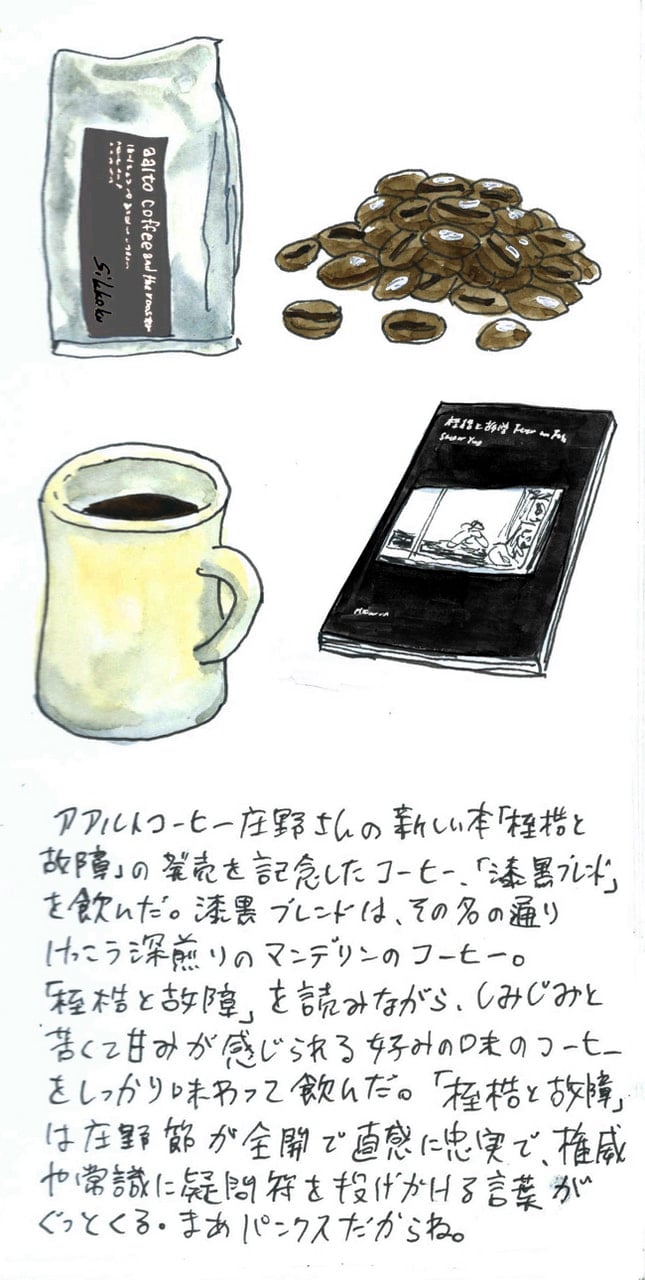 aalto coffee and the roaster
Sikkoku
桎梏と故障
アアルトコーヒー庄野さんの新しい本「桎梏と
故障」の発売を記念したコーヒー、「漆黒ブレンド」
を飲んだ。漆黒ブレンドは、その名の通り
けっこう深煎りのマンデリンのコーヒー。
「桎梏と故障」を読みながら、しみじみと
苦くて甘みが感じられる好みの味のコーヒー
をしっかり味わって飲んだ。「桎梏と故障」
は庄野節が全開で直感に忠実で、権威
や常識に疑問符を投げかける言葉が
ぐっとくる。まあパンクスだからね。